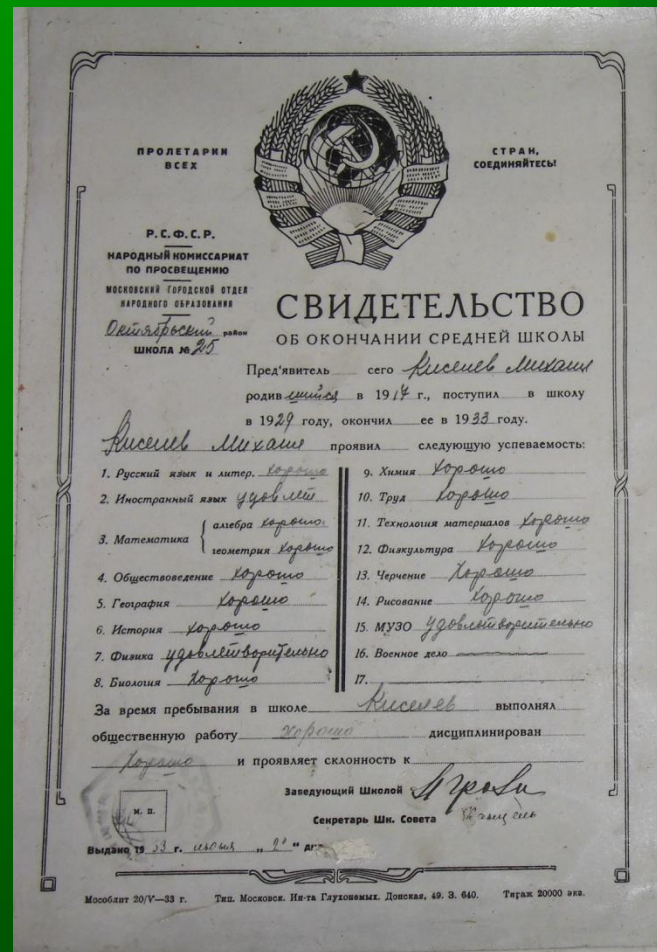 ПРОЛЕТАРИИ ВСЕХ СТРАН, СОЕДИНЯЙТЕСЬ!
Р. С. Ф. С. Р.
НАРОДНЫЙ КОМИССАРИАТ
ПО ПРОСВЕЩЕНИЮ
МОСКОВСКИЙ ГОРОДСКОЙ ОТДЕЛ
НАРОДНОГО ОБРАЗОВАНИЯ
Октябрьский район
ШКОЛА № 25
СВИДЕТЕЛЬСТВО
ОБ ОКОНЧАНИИ СРЕДНЕЙ ШКОЛЫ
Пред'явитель сего Киселев Михаил
родившийся в 1917 г., поступил в школу
в 1929 году, окончил ее в 1933 году.
Киселев Михаил проявил следующую успеваемость:
1. Русский язык и литер. хорошо
2. Иностранный язык удовлет
3. Математика { алгебра хорошо
геометрия хорошо
4. Обществоведение хорошо
5. География хорошо
6. История хорошо
7. Физика удовлетворительно
8. Биология хорошо
9. Химия хорошо
10. Труд хорошо
11. Технология материалов хорошо
12. Физкультура хорошо
13. Черчение хорошо
14. Рисование хорошо
15. МУЗО удовлетворительно
16. Военное дело
17.
За время пребывания в школе Киселев выполнял
общественную работу хорошо дисциплинирован
хорошо и проявляет склонность к
Заведующий Школой
м. п.
Секретарь Шк. Совета
Выдано 1933 г. июня
Мособлит 20/V—33 г. Тип. Московск. Ин-та Глухонемых. Донская, 49. З. 640. Тираж 20000 экз.